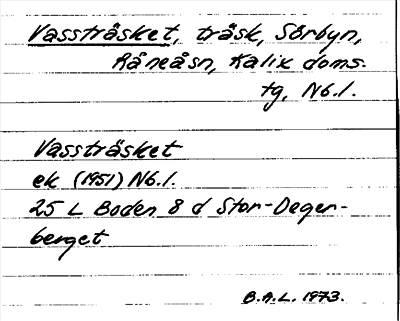 Vassträsket, träsk, Sörbyn,
Råneåsn, Kalix doms.
tg, Nb.l.
Vassträsket
ek (1951) Nb.l.
25 L Boden 8 d Stor-Deger-
berget
B.A.L. 1973.